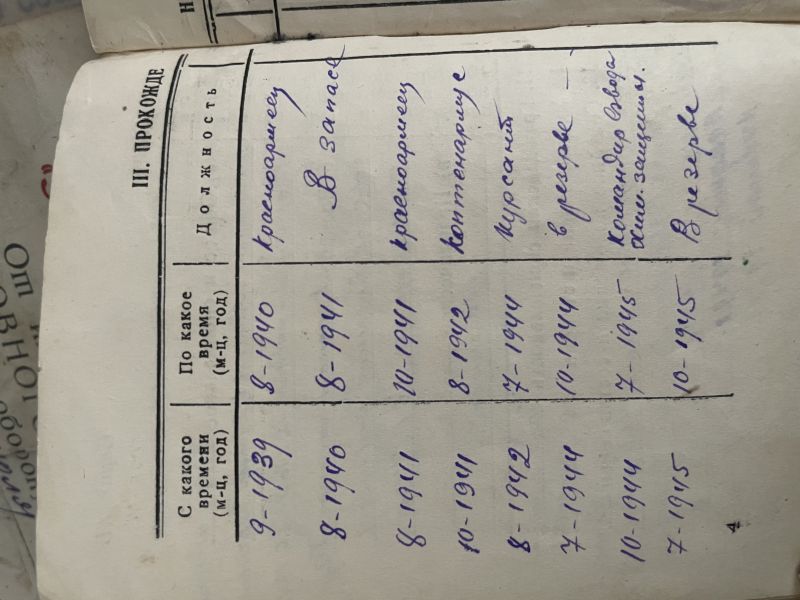 III. ПРОХОЖДЕ
С какого времени (м-ц, год) По какое время (м-ц, год) Должность
9-1939 8-1940 Красноармеец
8-1940 8-1941 В запасе
8-1941 10-1941 красноармеец
10-1941 8-1942 Коптенармус
8-1942 7-1944 Курсант
7-1944 10-1944 в резерве —
10-1944 7-1945 Командир взвода
хим. защиты.
7-1945 10-1945 В резерве
4